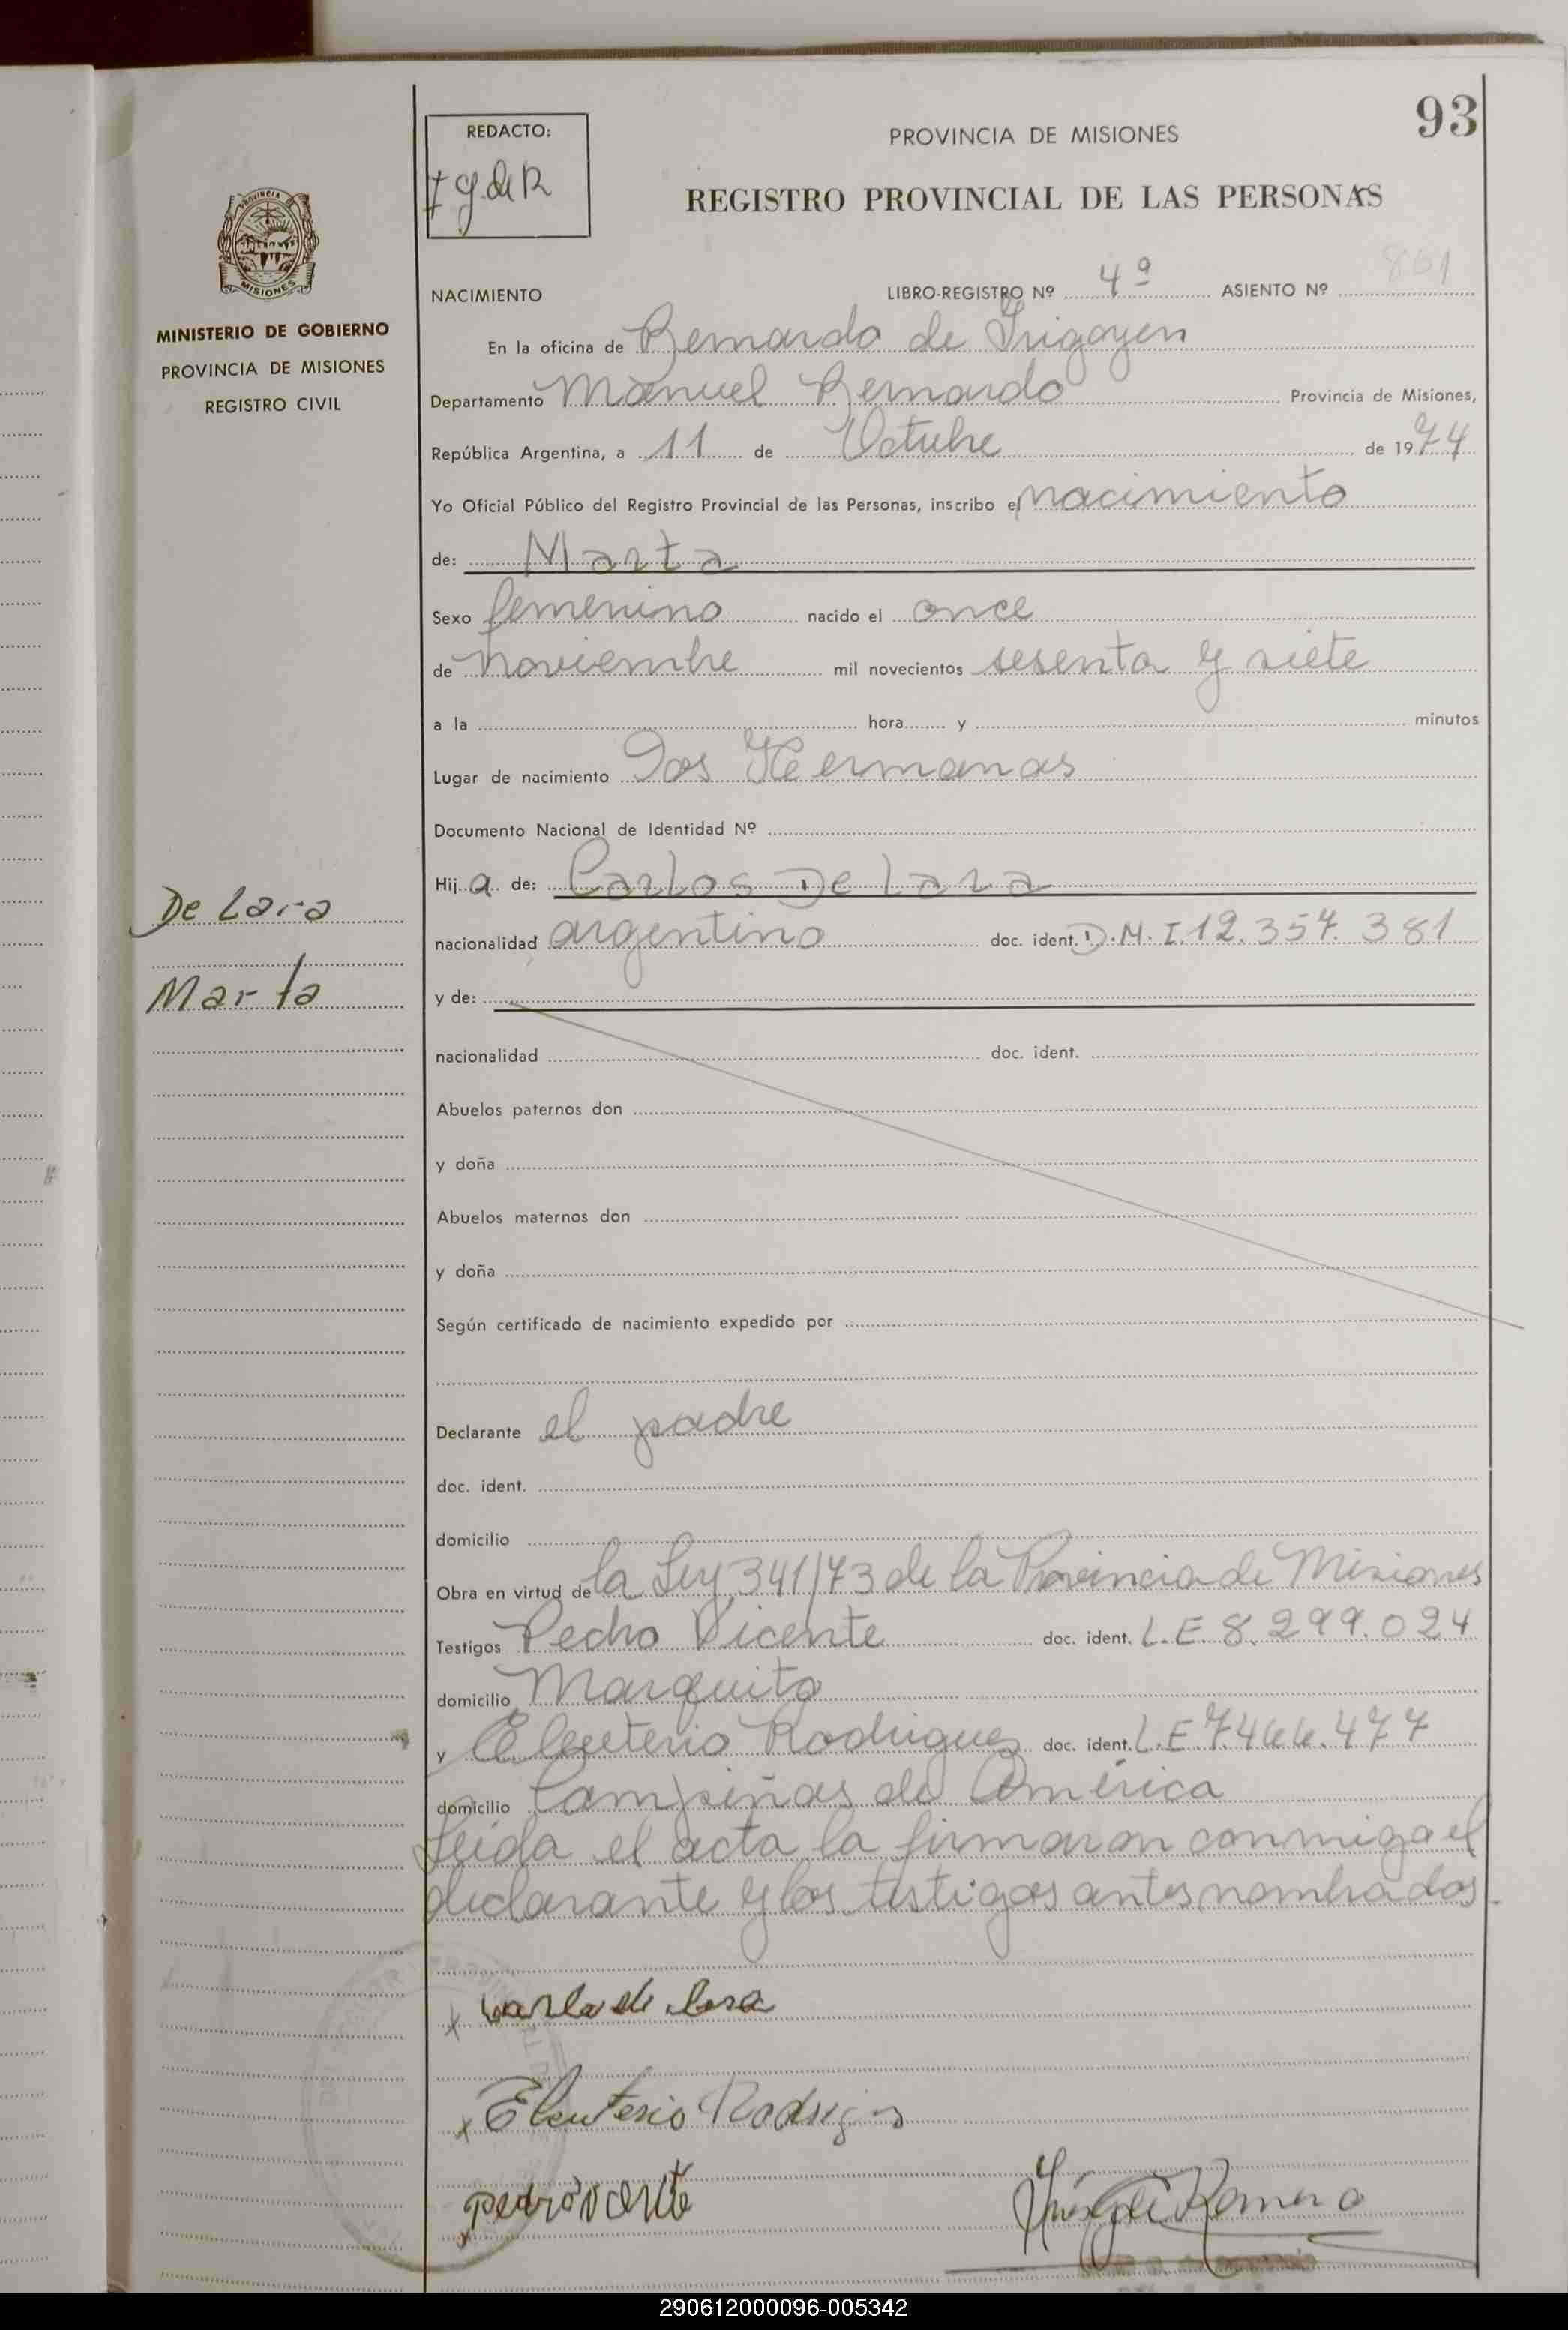 93
REDACTO:
PROVINCIA DE MISIONES
REGISTRO PROVINCIAL DE LAS PERSONAS
MISIONES
MINISTERIO DE GOBIERNO
PROVINCIA DE MISIONES
REGISTRO CIVIL
NACIMIENTO LIBRO-REGISTRO Nº 4º ASIENTO Nº
En la oficina de Bernardo de Irigoyen
Departamento Manuel Bernardo Provincia de Misiones,
República Argentina, a 11 de Octubre de 1974
Yo Oficial Público del Registro Provincial de las Personas, inscribo el nacimiento
de: Marta
Sexo femenino nacido el once
de noviembre mil novecientos sesenta y siete
a la hora y minutos
Lugar de nacimiento Dos Hermanas
Documento Nacional de Identidad Nº
Hija de: Carlos De Lara
De Lara
nacionalidad argentino doc. ident. D.M.I. 12.357.381
Marta
y de:
nacionalidad doc. ident.
Abuelos paternos don
y doña
Abuelos maternos don
y doña
Según certificado de nacimiento expedido por
Declarante el padre
doc. ident.
domicilio
Obra en virtud de la Ley 341/73 de la Provincia de Misiones
Testigos Pedro Vicente doc. ident. L.E. 8.299.024
domicilio Marquito
y Eleuterio Rodriguez doc. ident. L.E 7.466.477
domicilio Campiñas de América
Leida el acta la firmaron conmigo el
declarante y los testigos antes nombrados.
x Carlo de Lara
x Eleuterio Rodrigos
290612000096-005342